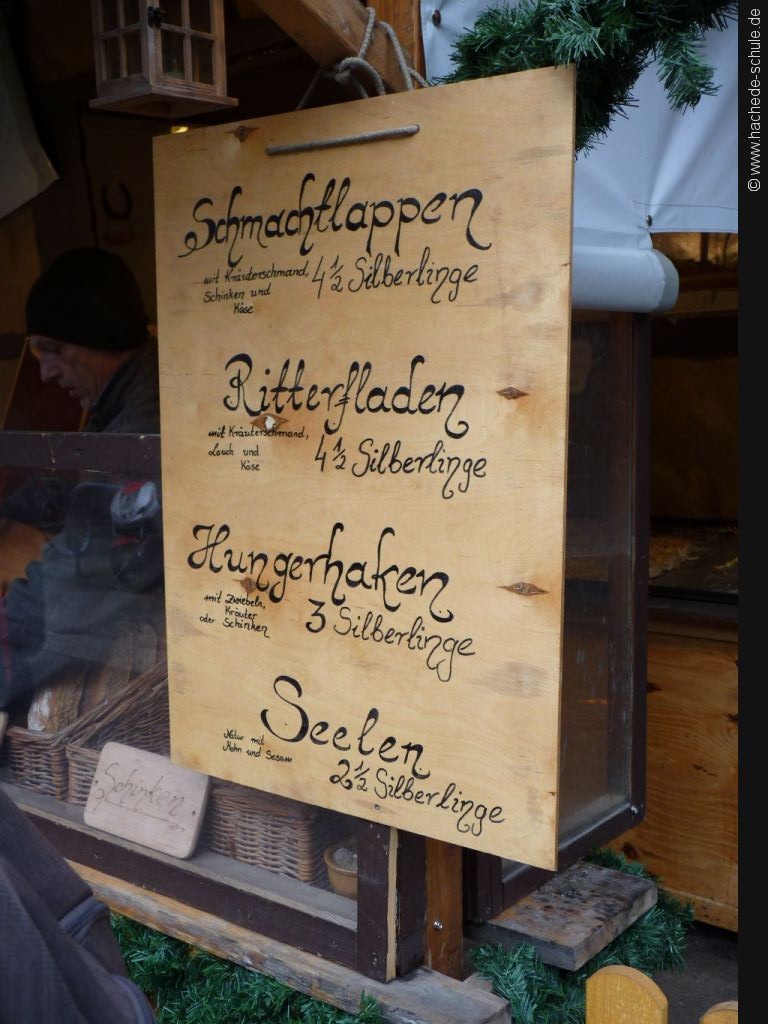 Schmachtlappen
mit Kräuterschmand,
Schinken und
Käse
4 1/2 Silberlinge
Ritterfladen
mit Kräuterschmand,
Lauch und
Käse
4 1/2 Silberlinge
Hungerhaken
mit Zwiebeln,
Kräuter
oder Schinken
3 Silberlinge
Seelen
Natur mit
Mohn und Sesam
2 1/2 Silberlinge
Schinken
© www.hachede-schule.de